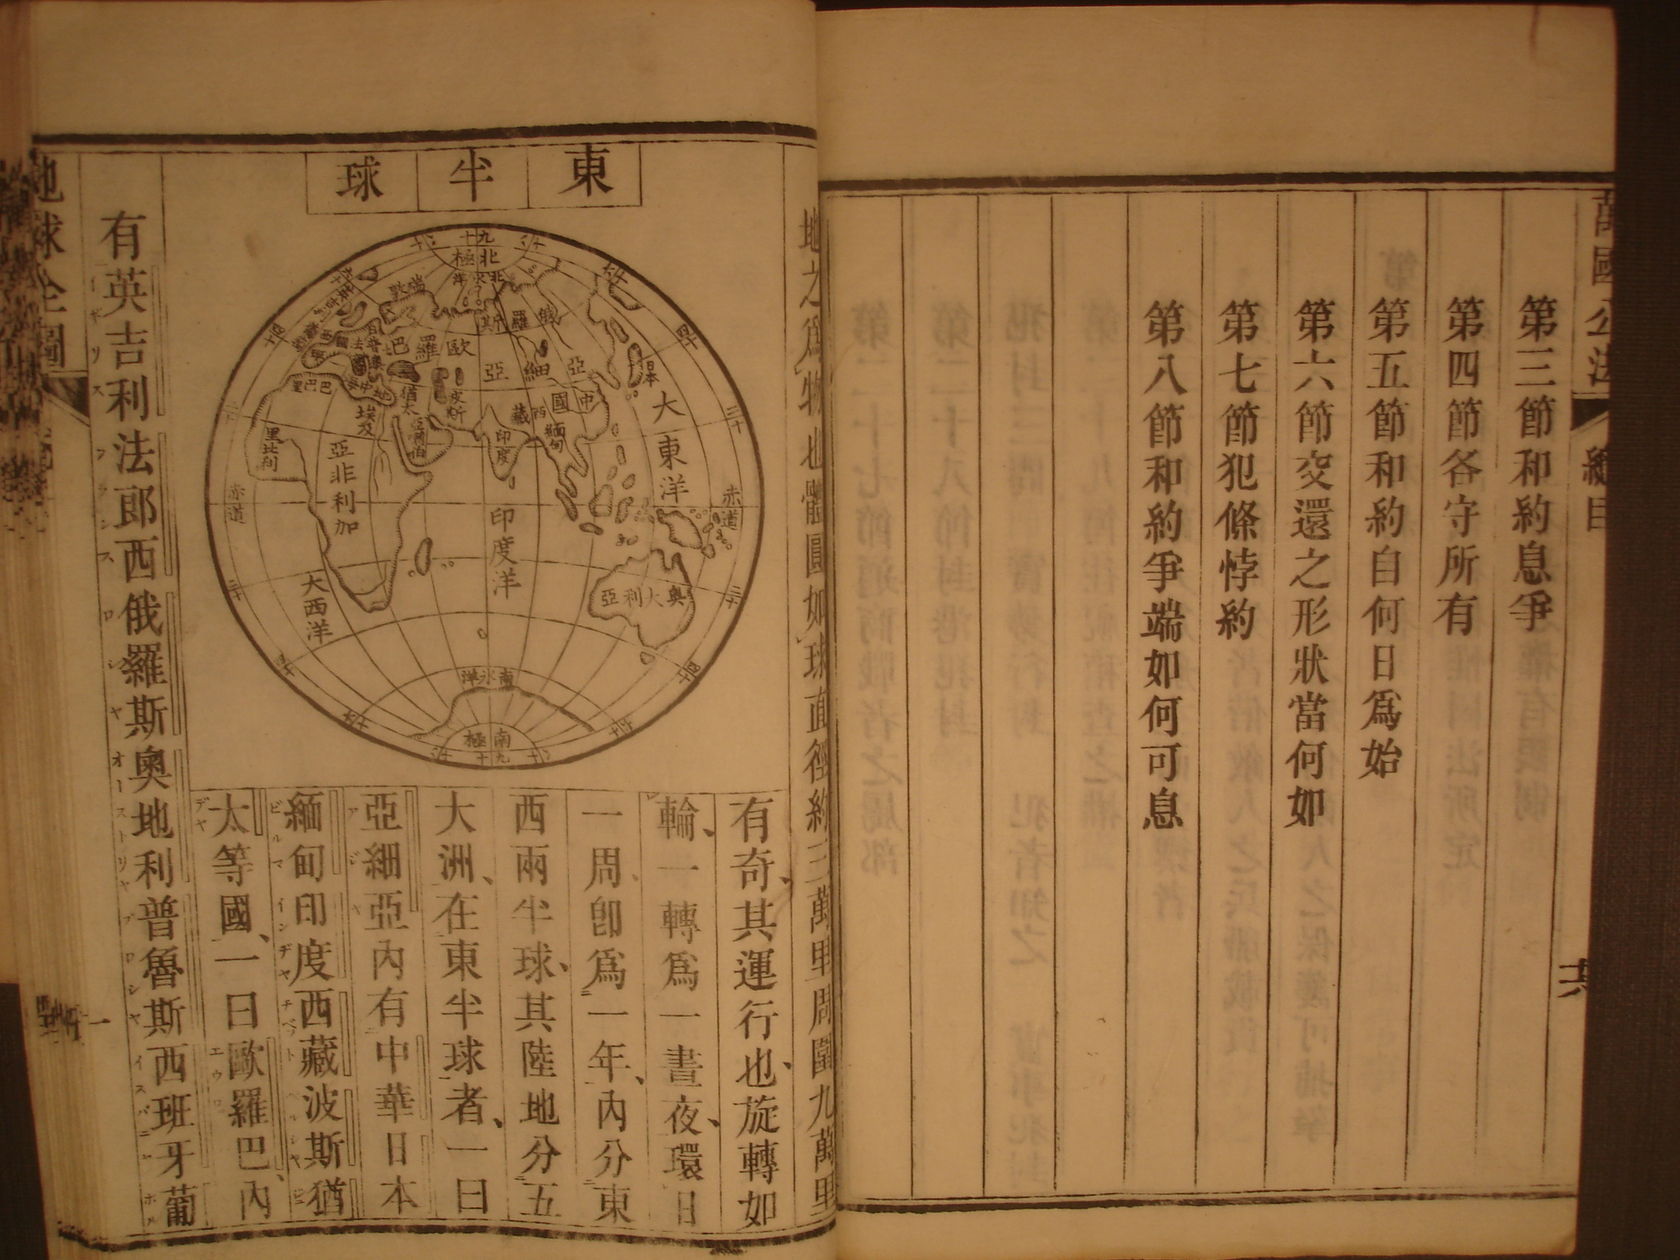 萬國公法
總目
第三節和約息爭
第四節各守所有
第五節和約自何日爲始
第六節交還之形狀當何如
第七節犯條悖約
第八節和約爭端如何可息
地之爲物也體圓如球直徑約三萬里周圍九萬里
有奇其運行也旋轉如
輪一轉爲一晝夜環日
一周卽爲一年內分東
西兩半球其陸地分五
大洲在東半球者一曰
亞細亞內有中華日本
緬甸印度西藏波斯猶
太等國一曰歐羅巴內
有英吉利法郎西俄羅斯奧地利普魯斯西班牙葡
東半球
九十
北極
俄羅斯
歐羅巴
亞細亞
日本
中國
西藏
緬甸
印度
猶太
埃及
亞非利加
大東洋
印度洋
大西洋
赤道
赤道
奧大利亞
南冰洋
南極
九十
地球全圖
一